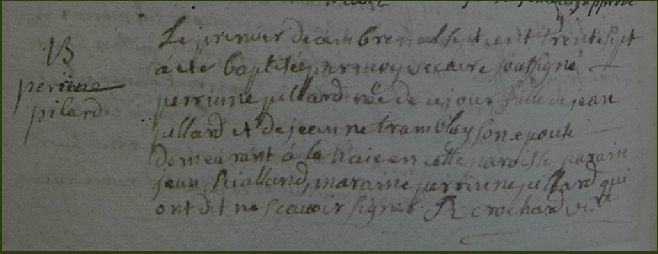 B
perrine
pilard
Le premier decembre mal sept cent trente sept
a ete baptisée par moy vicaire soussigné
perrinne pillard née de ce jour fille de jean
pillard et de jeanne tramblay son epouse
demeurant à la haie en cette paroisse parain
jean Rialland, maraine perrinne pillard qui
ont dit ne scavoir signer. R crochard vic